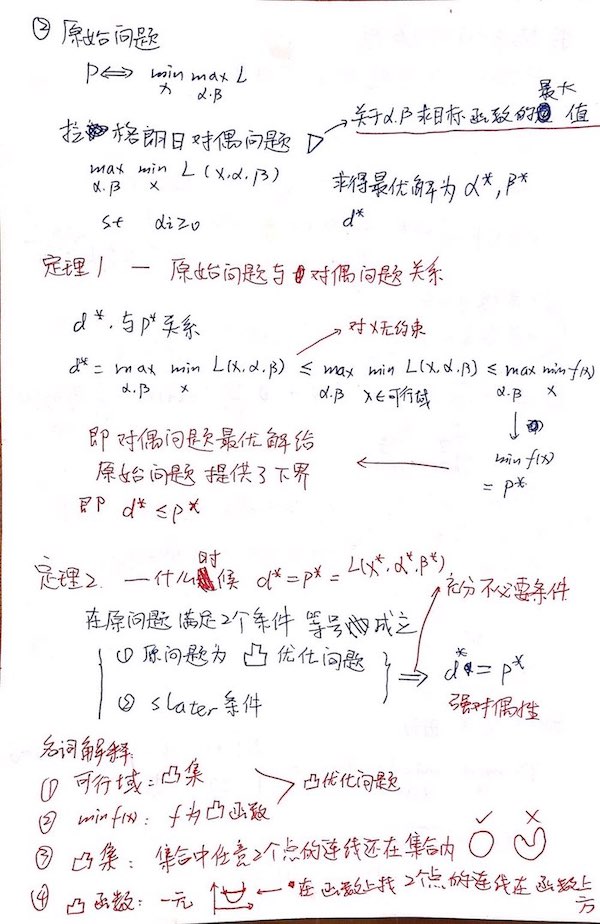 ② 原始问题
P ⟺ min max L
x α.β
拉格朗日对偶问题 ▷ → 关于α.β求目标函数的最大值
max min L(x,α,β)
α.β x
求得最优解为 α*, β*
st αi≥0
d*
定理1 — 原始问题与对偶问题关系
d*.与p*关系
→ 对x无约束
d* = max min L(x,α,β) ≤ max min L(x,α,β) ≤ max min f(x)
α.β x α.β x∈可行域 α.β x
即对偶问题最优解给
原始问题提供了下界
即 d* ≤ p*
↓
min f(x)
= p*
定理2 — 什么时候 d* = p* = L(x*,α*,β*)
充分不必要条件
在原问题满足2个条件 等号成立
① 原问题为 凸 优化问题
② slater 条件
⟹ d* = p*
强对偶性
名词解释
① 可行域：凸集
② min f(x)：f为凸函数
凸优化问题
③ 凸集：集合中任意2个点的连线还在集合内 ✓ ×
④ 凸函数：一元 ← 在函数上找2个点的连线在函数上方